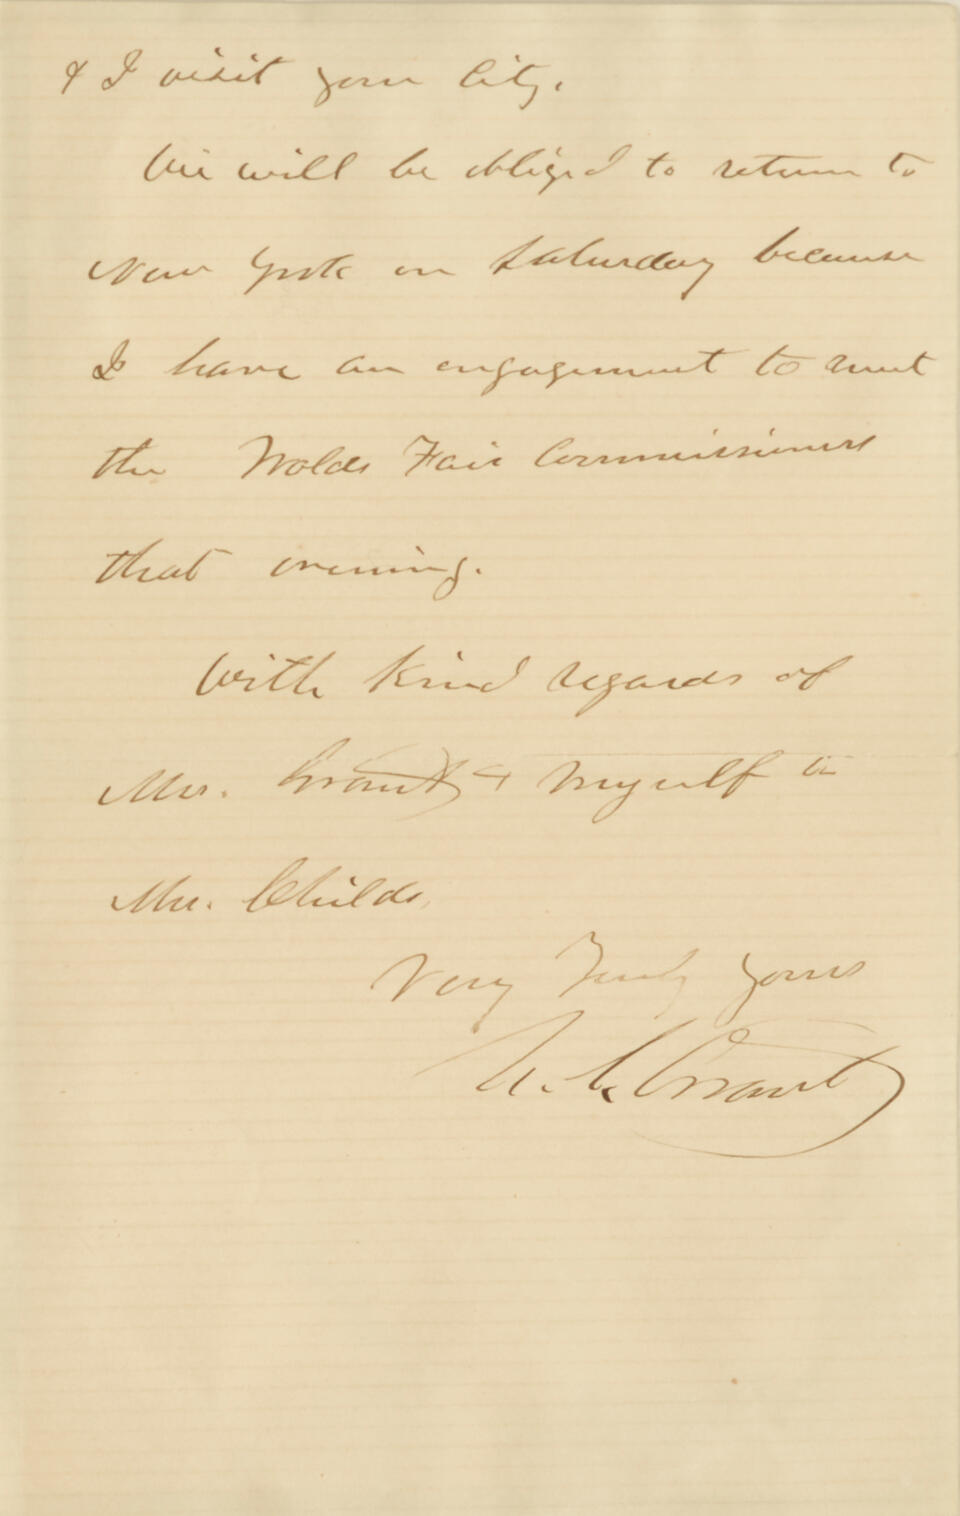 & I visit your City.
We will be obliged to return to
New York on Saturday because
I have an engagement to meet
the Wolds Fair Commissioners
that evening.
With kind regards of
Mrs. Grant & myself to
Mrs. Childs,
Very Truly yours
U. S. Grant